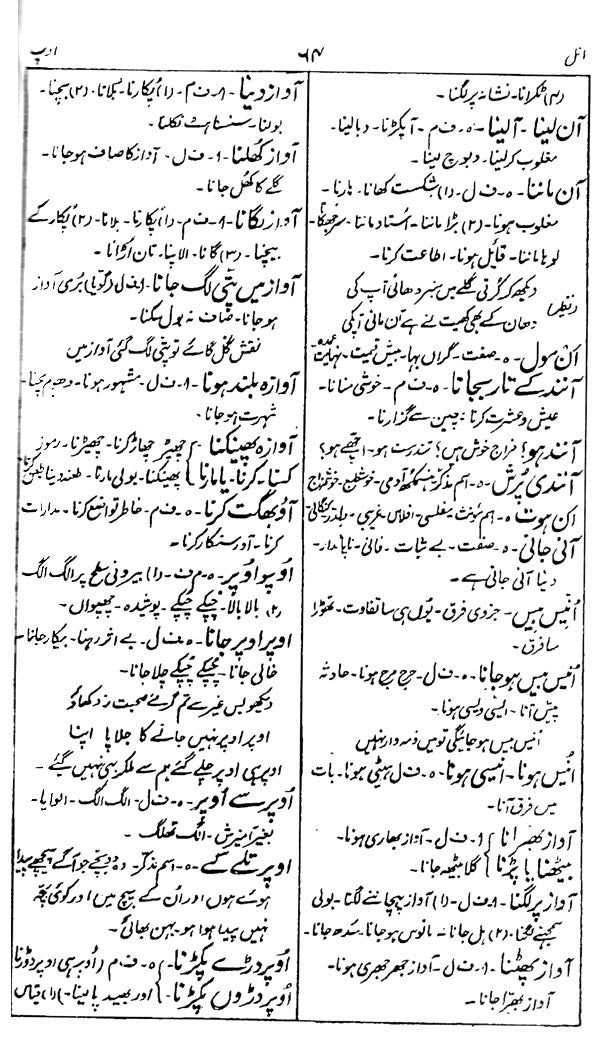 انل
۶۴
اوپ
(۳) ٹکرانا۔ نشانہ پر لگنا۔
آن لینا۔ آلینا۔ ہ۔ ف م۔ آپکڑنا۔ دبالینا۔
مغلوب کرلینا۔ دبوچ لینا۔
آن ماننا۔ ہ۔ ف ل۔ (۱) شکست کھانا۔ ہارنا۔
مغلوب ہونا۔ (۲) بڑا ماننا۔ استاد ماننا۔ سرجھکانا۔
لوہا ماننا۔ قائل ہونا۔ اطاعت کرنا۔
دیکھ کر کُرتی گلے میں سبز دھانی آپ کی
دھان کے بھی کھیت نے ہے آن مانی آپکی
ان مول۔ ہ۔ صفت۔ گراں بہا۔ بیش قیمت۔ نہایت عمدہ
آنند کے تار بجانا۔ ہ۔ ف م۔ خوشی منانا۔
عیش و عشرت کرنا۔ چین سے گزارنا۔
آنند ہو؟ مزاج خوش ہیں؟ تندرست ہو۔ اچھے ہو؟
آنندی پرش۔ ہ۔ اسم مذکر۔ ہنسمکھ آدمی۔ خوش طبع۔ خوش مزاج
ان ہوت۔ ہ۔ اسم مؤنث۔ مفلسی۔ افلاس۔ غریبی۔
آنی جانی۔ ہ۔ صفت۔ بے ثبات۔ فانی۔ ناپائدار۔
دنیا آنی جانی ہے۔
اُنیس بیس۔ جزوی فرق۔ یوں ہی سا تفاوت۔ تھوڑا
سا فرق۔
اُنیس بیس ہوجانا۔ ہ۔ ف ل۔ حرج مرج ہونا۔ حادثہ
پیش آنا۔ ایسی ویسی ہونا۔
اُنیس بیس ہوجائیگی تو میں ذمہ دار نہیں
اُنیس ہونا۔ اُنیسی ہونا۔ ہ۔ ف ل۔ ہیٹی ہونا۔ بات
میں فرق آنا۔
آواز بھرانا ا۔ ف ل۔ آواز بھاری ہونا۔
بیٹھنا یا پڑنا گلا بیٹھ جانا۔
آواز پر لگنا۔ ا۔ ف ل۔ (۱) آواز پہچاننے لگنا۔ بولی
سمجھنے لگنا۔ (۲) ہل جانا۔ مانوس ہوجانا۔ سدھ جانا۔
آواز پھٹنا۔ ا۔ ف ل۔ آواز جھرجھری ہونا۔
آواز بھرّا جانا۔
آواز دینا۔ ا۔ ف م۔ (۱) پُکارنا۔ بلانا۔ (۲) بجنا۔
بولنا۔ سنسناہٹ نکلنا۔
آواز کھُلنا۔ ا۔ ف ل۔ آواز کا صاف ہوجانا۔
گلے کا کھُل جانا۔
آواز لگانا۔ ا۔ ف م۔ (۱) پُکارنا۔ بلانا۔ (۲) پُکار کے
بیچنا۔ (۳) گانا۔ الاپنا۔ تان اُڑانا۔
آواز میں پتّی لگ جانا۔ ا۔ ف ل (گویا) بُری آواز
ہوجانا۔ صاف نہ بول سکنا۔
نقشِ گل گائے تو پتی لگ گئی آواز میں
آوازہ بلند ہونا۔ ا۔ ف ل۔ مشہور ہونا۔ دھوم مچنا۔
شہرت ہوجانا۔
آوازہ پھینکنا چھیڑ چھاڑ کرنا۔ چھیڑنا۔ رموز
کسنا۔ کرنا۔ یا مارنا پھینکنا۔ بولی مارنا۔ طعنہ دینا
آؤ بھگت کرنا۔ ہ۔ ف م۔ خاطر تواضع کرنا۔ مدارات
کرنا۔ آدر ستکار کرنا۔
اُوپر اُوپر۔ ہ۔ م ف۔ (۱) بیرونی سطح پر الگ الگ
(۲) بالا بالا۔ چپکے چپکے۔ پوشیدہ۔ چھپواں۔
اوپر اوپر جانا۔ ہ۔ ف ل۔ بے اثر رہنا۔ بیکار جانا۔
خالی جانا۔ چپکے چپکے چلا جانا۔
دیکھو بس غیر سے تم گرمئ صحبت نہ دکھاؤ
اوپر اوپر نہیں جانے کا جلاپا اپنا
اوپر ہی اوپر چلے گئے ہم سے ملکر بھی نہیں گئے۔
اُوپر سے اُوپر۔ ہ۔ ف ل۔ الگ الگ۔
بغیر آمیزش۔ الگ تھلگ۔
اوپر تلے کے۔ ہ۔ اسم مذکر۔ وہ دو بچے جو آگے پیچھے پیدا
ہوئے ہوں اور اُن کے بیچ میں اور کوئی بچّہ
نہیں پیدا ہوا ہو۔ بہن بھائی۔
اُوپر دَرے پکڑنا۔ ہ۔ ف م
اُوپر دروں پکڑنا۔